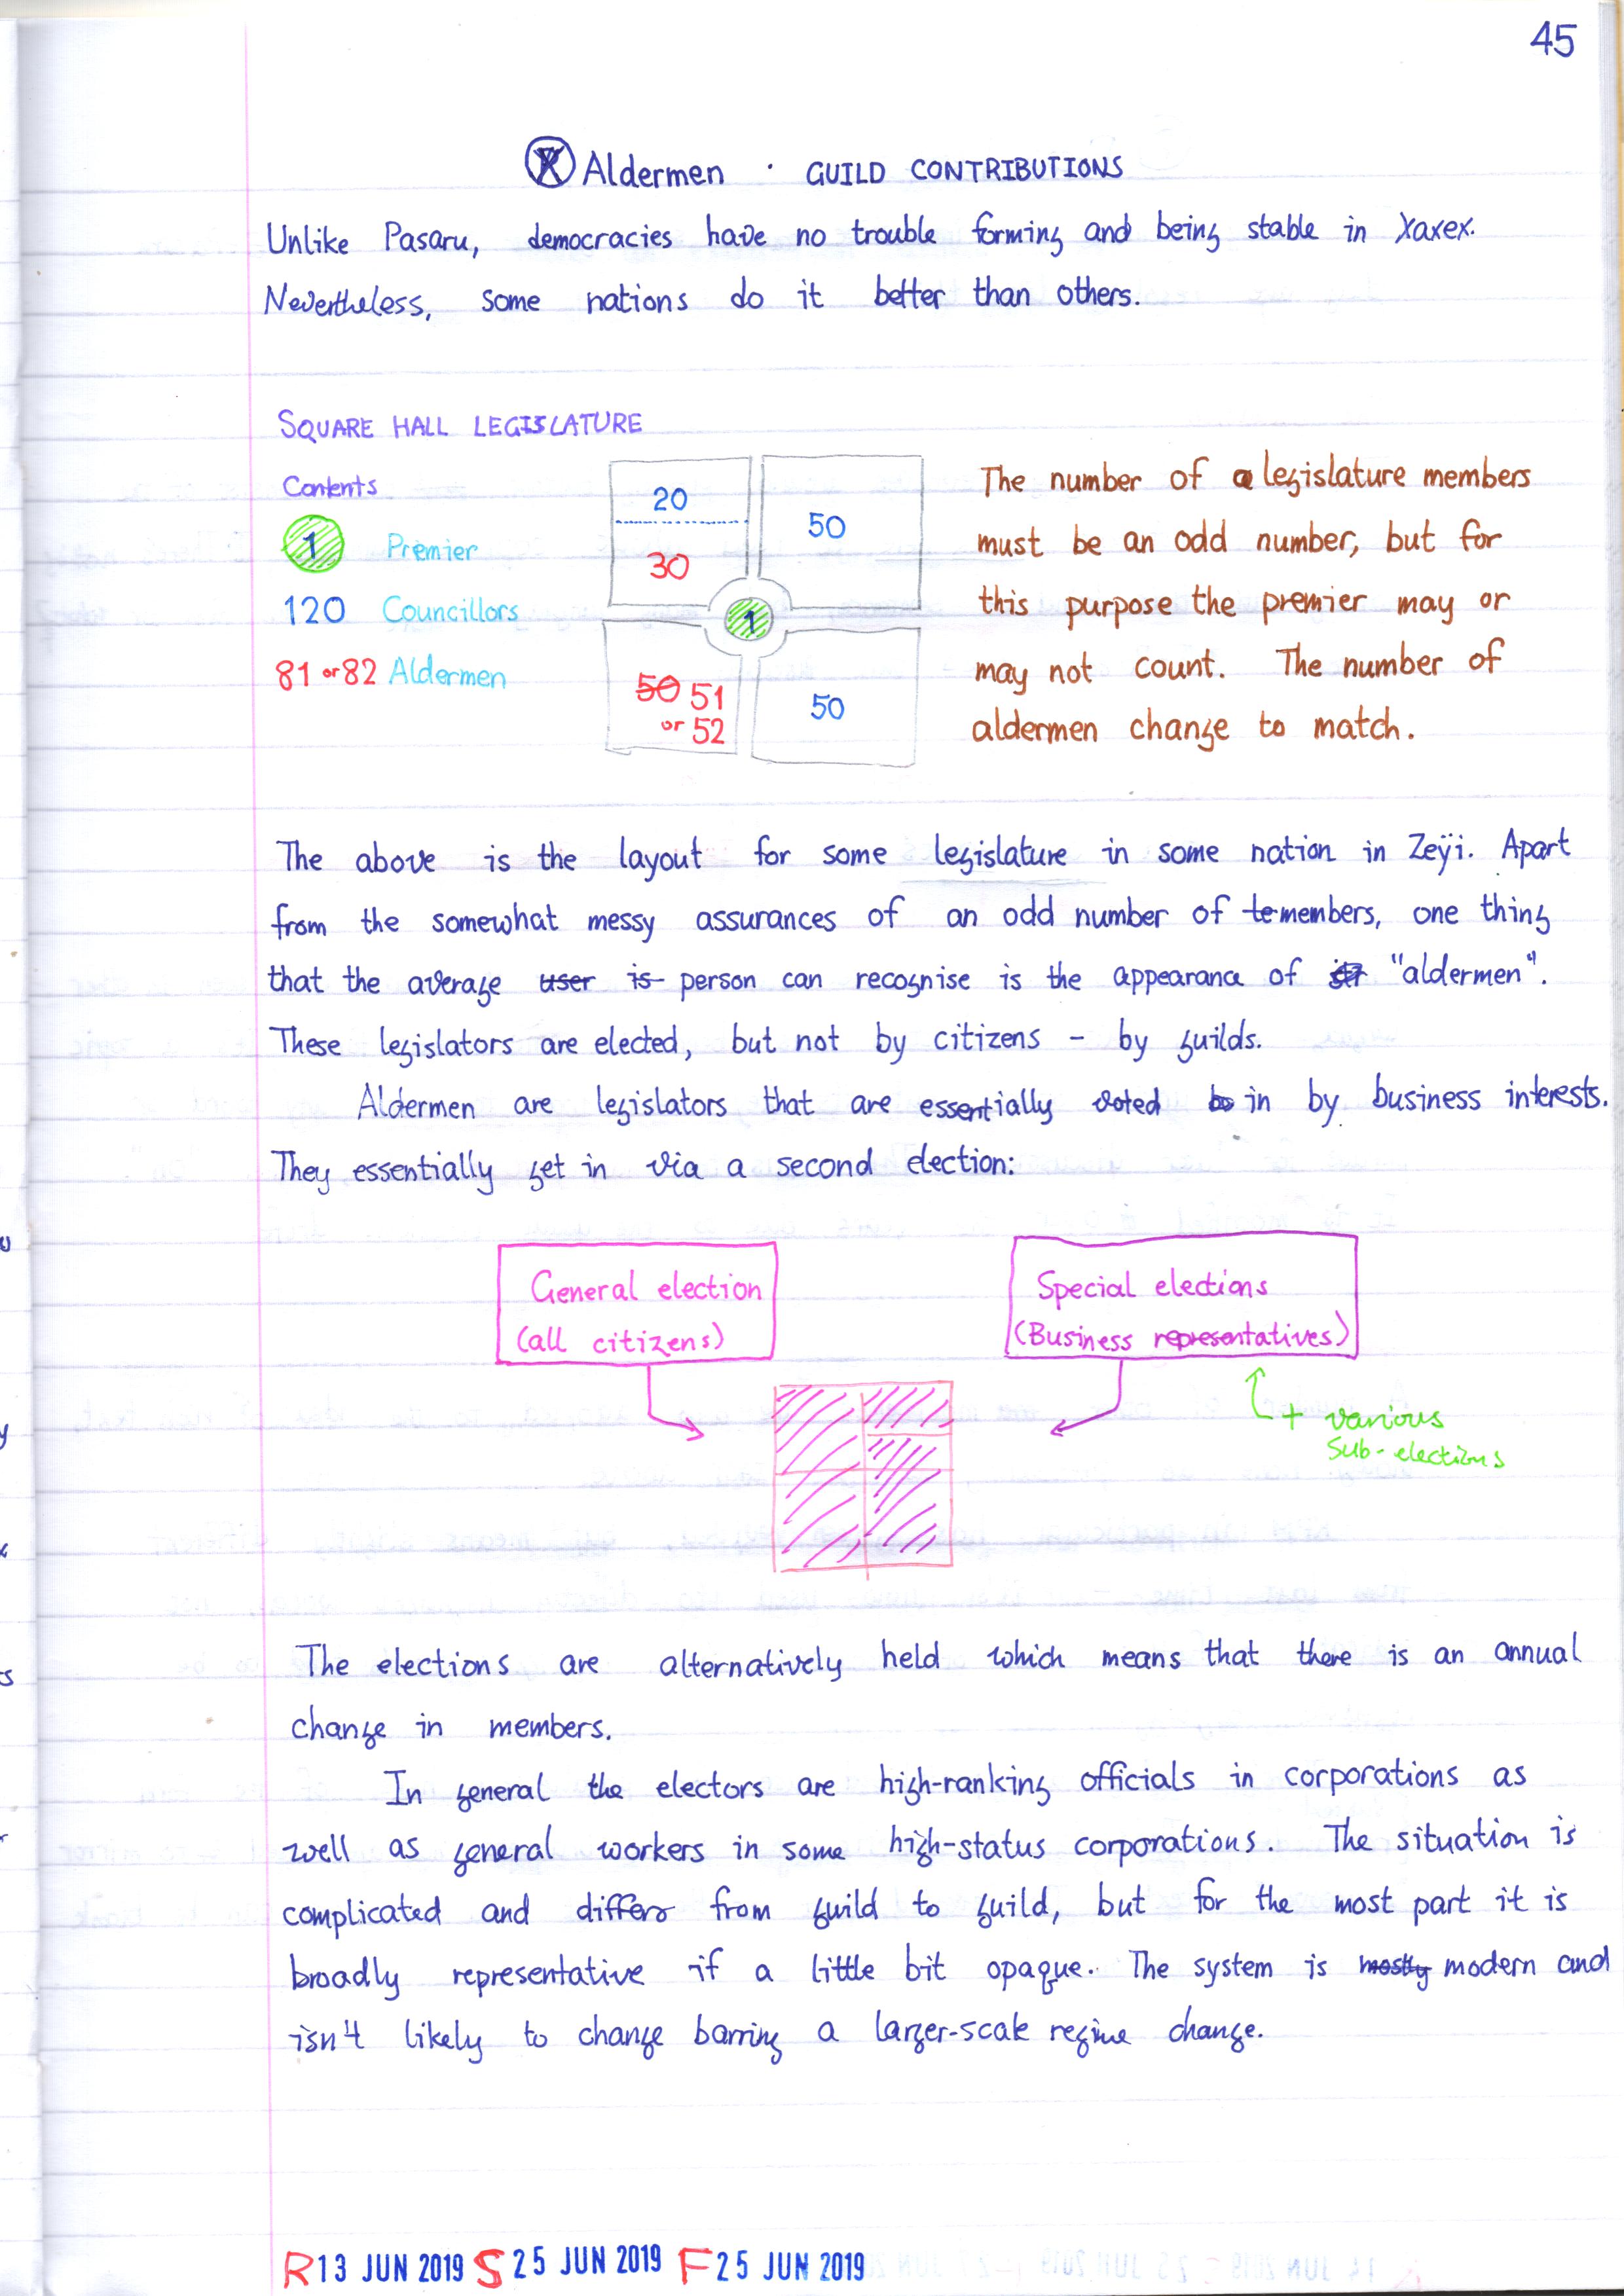 45
Aldermen · GUILD CONTRIBUTIONS
Unlike Pasaru, democracies have no trouble forming and being stable in Xaxex.
Nevertheless, some nations do it better than others.
SQUARE HALL LEGISLATURE
Contents
1 Premier
120 Councillors
81 or 82 Aldermen
20
30
50
1
50 51
or 52
50
The number of a legislature members
must be an odd number, but for
this purpose the premier may or
may not count. The number of
aldermen change to match.
The above is the layout for some legislature in some nation in Zeÿi. Apart
from the somewhat messy assurances of an odd number of te members, one thing
that the average user is person can recognise is the appearance of "aldermen".
These legislators are elected, but not by citizens - by guilds.
Aldermen are legislators that are essentially voted in by business interests.
They essentially get in via a second election:
General election
(all citizens)
Special elections
(Business representatives)
+ various
sub-elections
The elections are alternatively held which means that there is an annual
change in members.
In general the electors are high-ranking officials in corporations as
well as general workers in some high-status corporations. The situation is
complicated and differs from guild to guild, but for the most part it is
broadly representative if a little bit opaque. The system is mostly modern and
isn't likely to change barring a larger-scale regime change.
R 13 JUN 2019 S 25 JUN 2019 F 25 JUN 2019